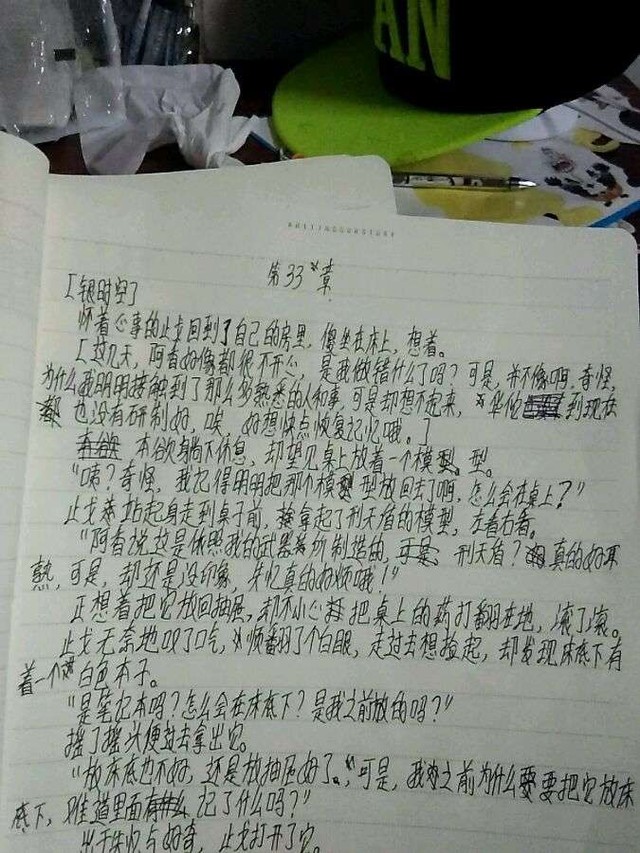 AN
第33章
[银时空]
怀着心事的止戈回到了自己的房里，傻坐在床上，想着。
[这几天，阿香好像都很不开心，是我做错什么了吗？可是，并不像啊，奇怪，
为什么我明明接触到了那么多熟悉的人和事，可是却想不起来，华佗到现在
也没有研制好，唉，好想快点恢复记忆哦。]
本欲躺下休息，却望见桌上放着一个模型。
“咦？奇怪，我记得明明把那个模型放回去了啊，怎么会在桌上？”
止戈站起身走到桌子前，拿起了刑天盾的模型，左看右看。
“阿香说这是依照我的武器所制造的，刑天盾？真的好耳
熟，可是，却还是没印象，失忆真的好烦哦！”
正想着把它放回抽屉，却不小心把桌上的药打翻在地，滚了滚。
止戈无奈地叹了口气，顺翻了个白眼，走过去想捡起，却发现床底下有
着一个白色本子。
“是笔记本吗？怎么会在床底下？是我之前放的吗？”
摇了摇头便过去拿出它。
“放床底也不好，还是放抽屉好了。可是，我之前为什么要把它放床
底下，难道里面记了什么吗？”
出于失忆与好奇，止戈打开了它。